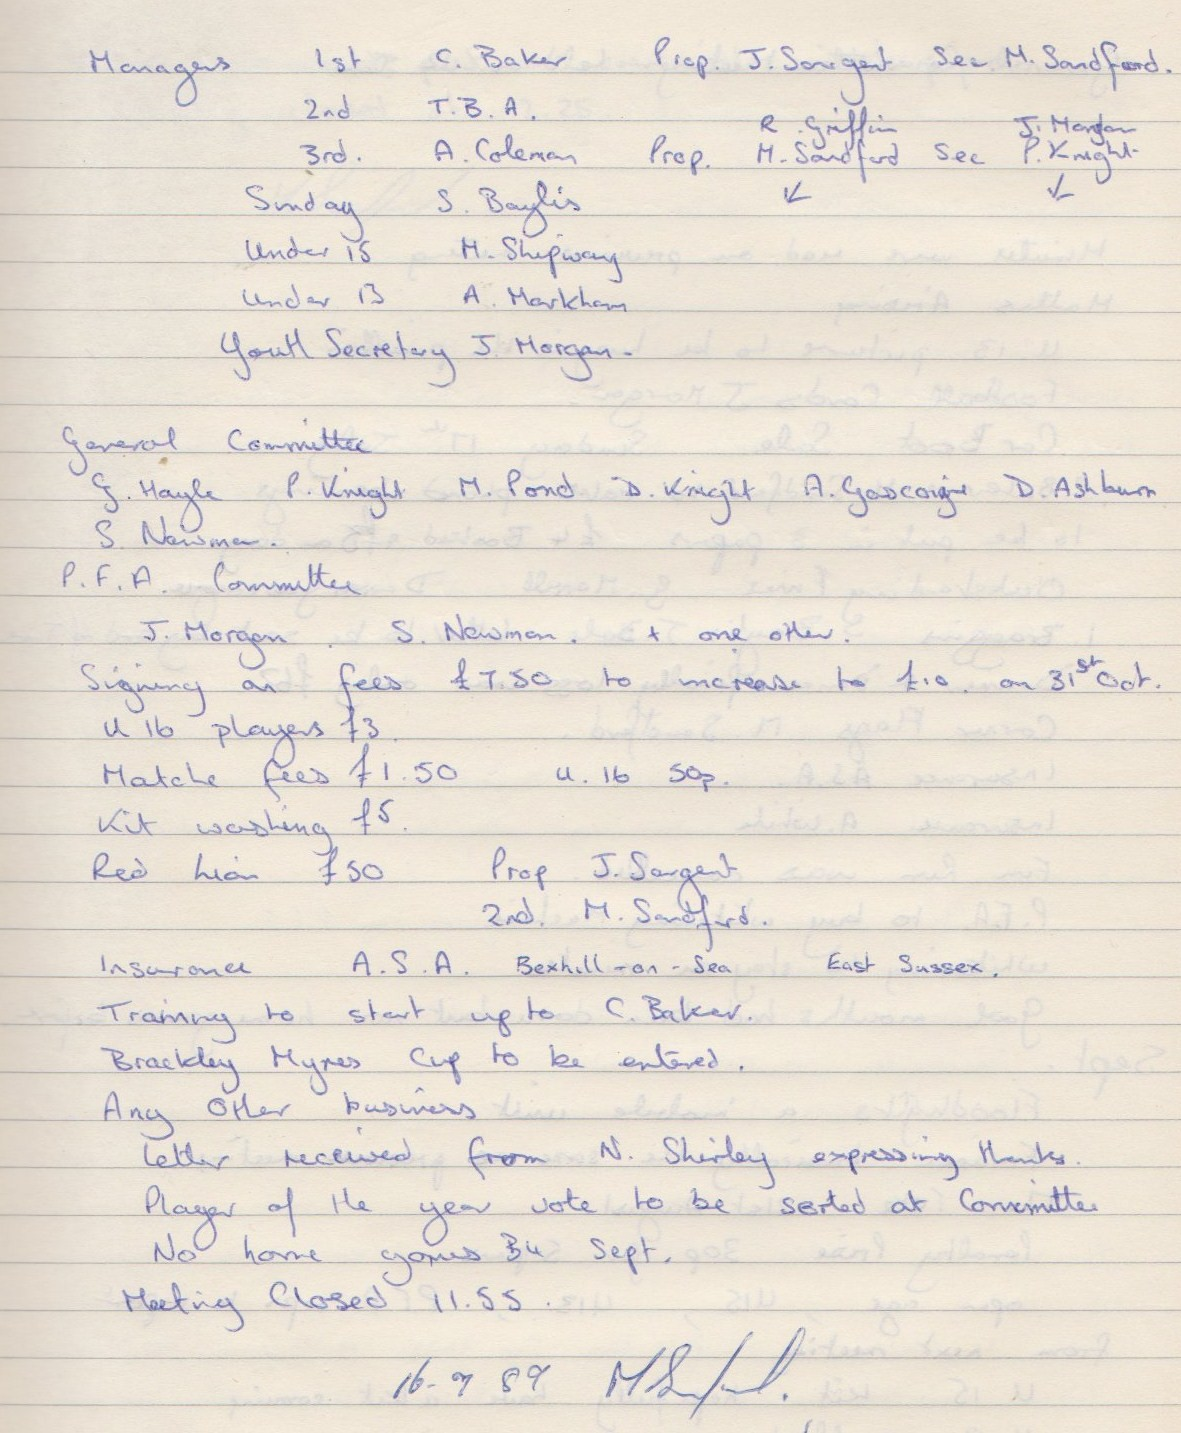 Managers 1st C. Baker Prop. J. Sargent Sec M. Sandford.
2nd T.B.A.
R. Griffin J. Morgan
3rd. A. Coleman Prop. M. Sandford Sec P. Knight
Sunday S. Baylis
Under 15 M. Shipway
Under 13 A. Markham
Youth Secretary J. Morgan.
General Committee
G. Hayle P. Knight M. Pond D. Knight A. Gascoigne D. Ashburn
S. Newman.
P.F.A. Committee
J. Morgan. S. Newman. + one other.
Signing on fees £7.50 to increase to £10. on 31st Oct.
U 16 players £3.
Matche fees £1.50 U.16 50p.
Kit washing £5.
Red Lion £50 Prop J. Sargent
2nd. M. Sandford.
Insurance A.S.A. Bexhill-on-Sea East Sussex.
Training to start up to C. Baker.
Brackley Mynes Cup to be entered.
Any Other business
Letter received from N. Shirley expressing thanks.
Player of the year vote to be sorted at Committee
No home games Sept.
Meeting Closed 11.55.
16-7 89